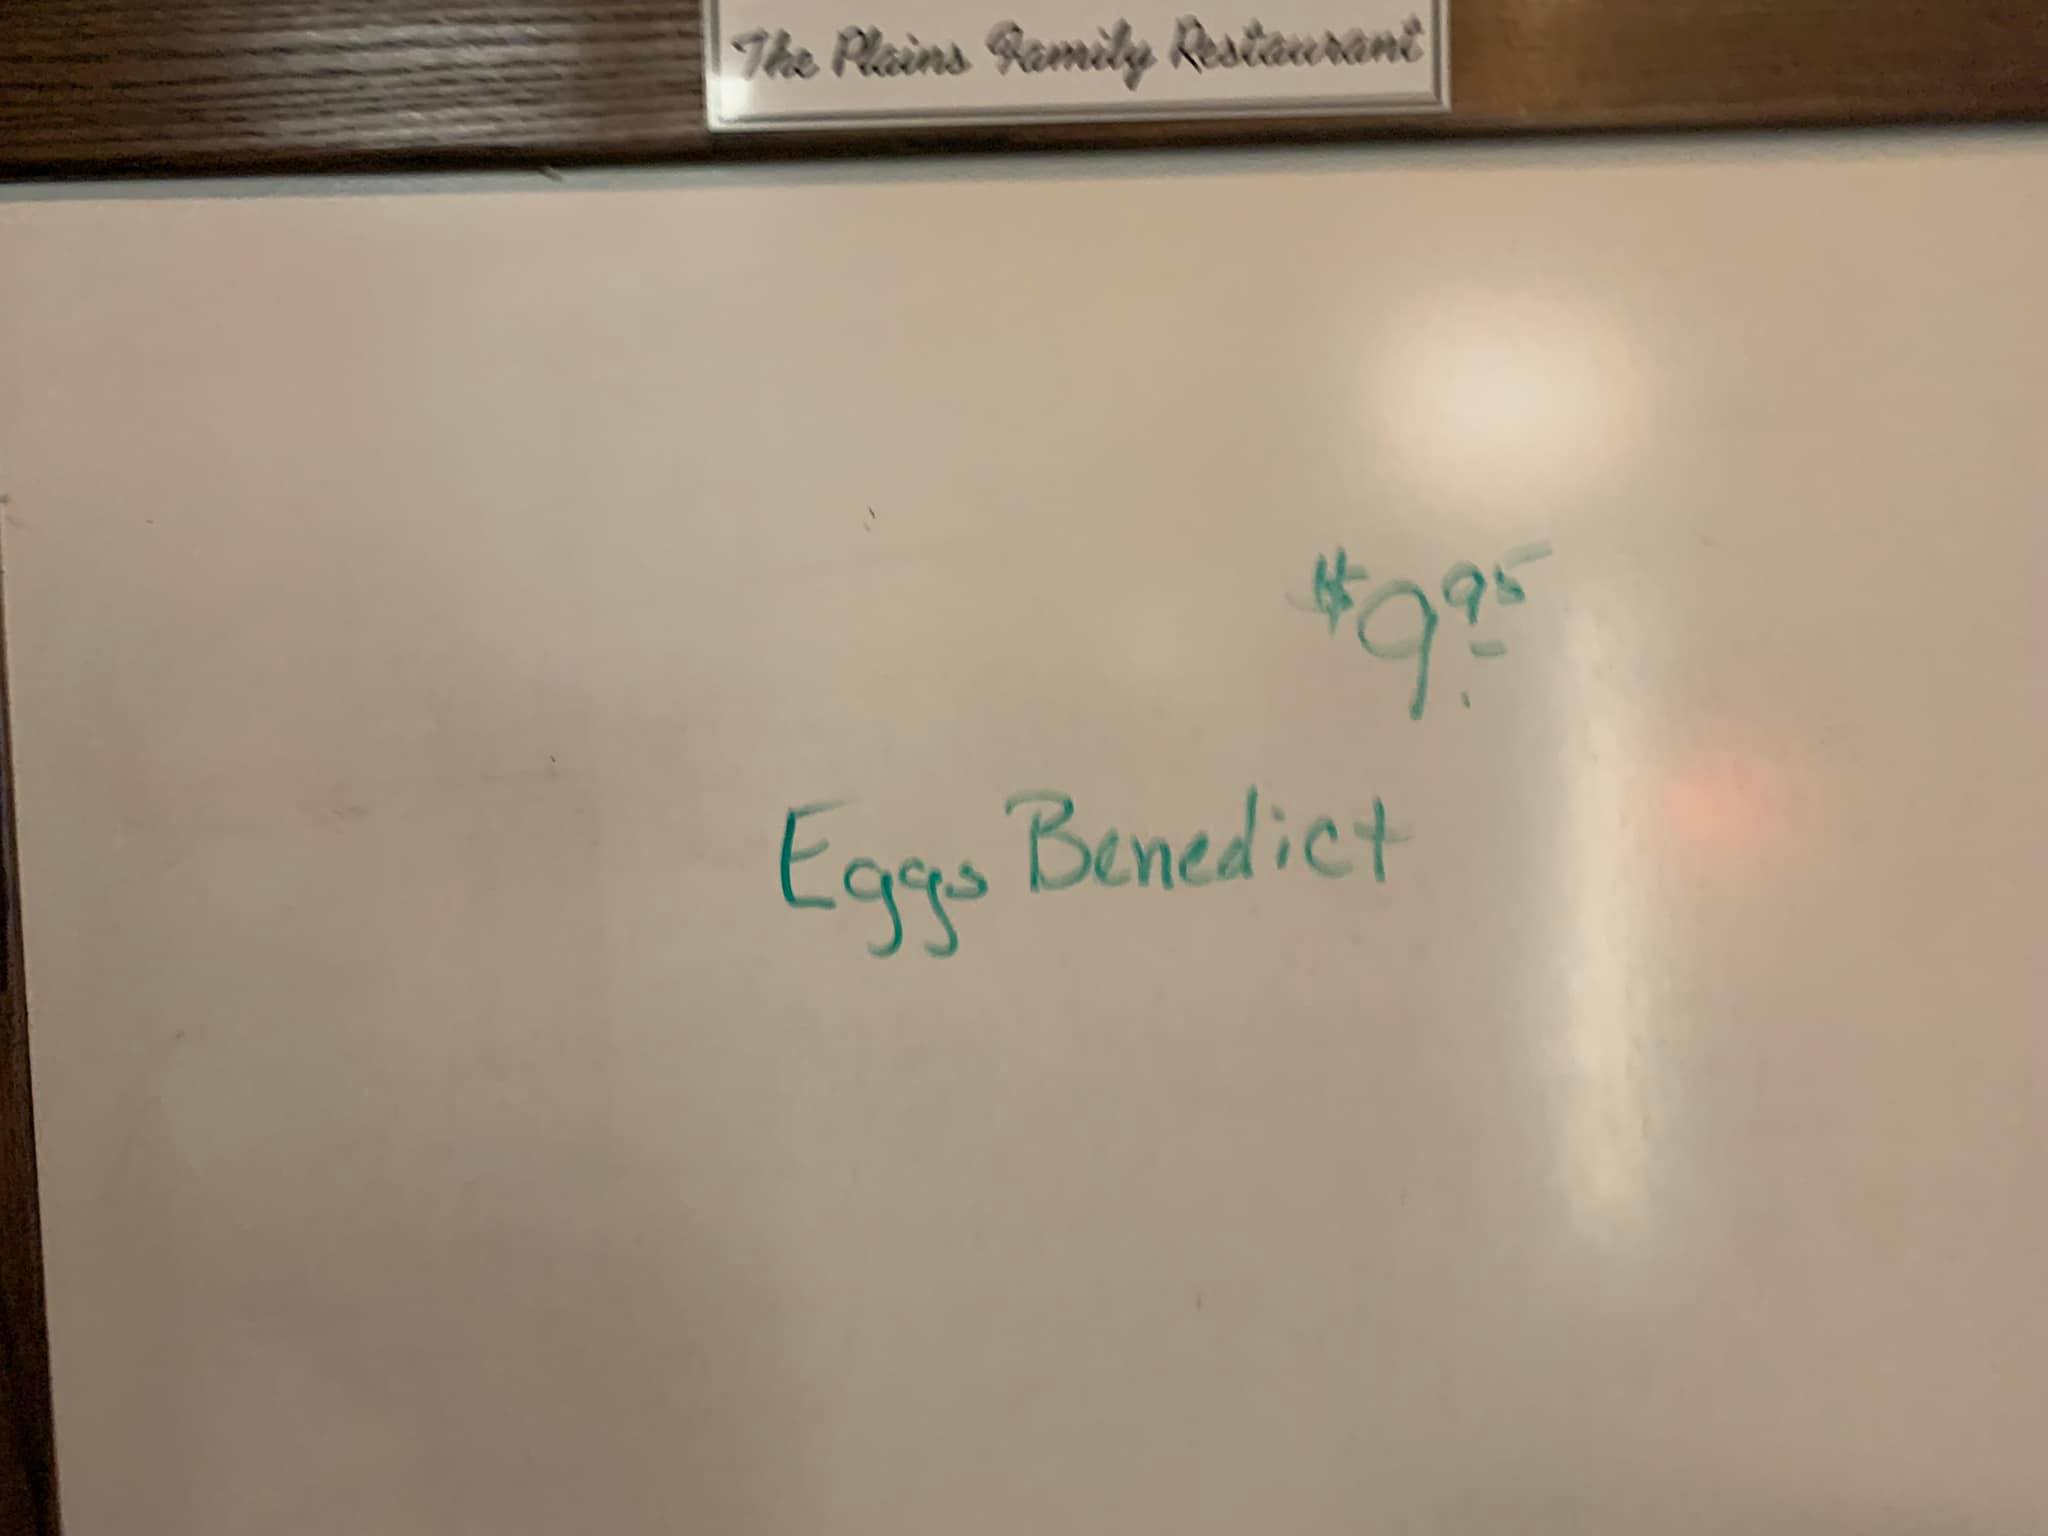 The Plains Family Restaurant
$9.95
Eggs Benedict